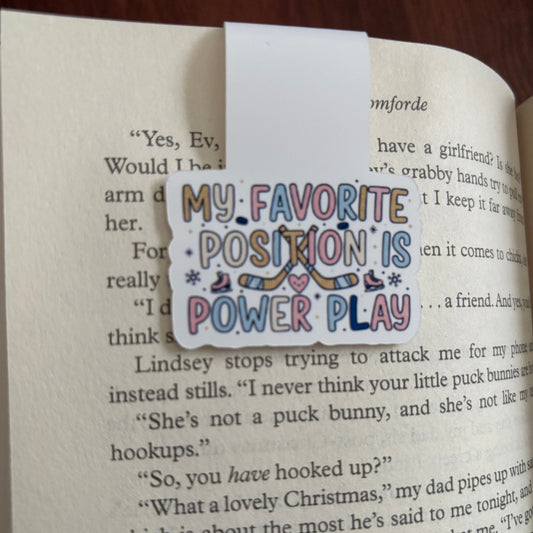 omforde
“Yes, Ev, have a girlfriend? Is she
Would I be grabby hands try to
arm d t I keep it far away
her.
MY FAVORITE
POSITION IS
POWER PLAY
For en it comes to
really
“I d . . . a friend. And yes,
think s
Lindsey stops trying to attack me for my phone
instead stills. “I never think your little puck bunnies are
“She’s not a puck bunny, and she’s not like my
hookups.”
“So, you have hooked up?”
“What a lovely Christmas,” my dad pipes up with
which is about the most he’s said to me tonight, and
me. “I’ve go